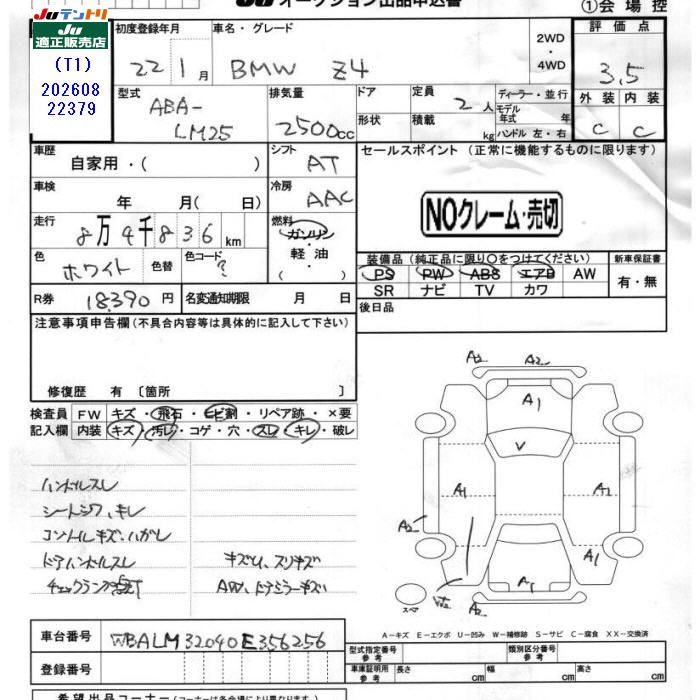 JU オークション出品申込書
①会場控
JUテントリ
JU
適正販売店
(T1)
202608
22379
初度登録年月
車名・グレード
2WD
・
4WD
評価点
22 1月
BMW Z4
3.5
型式
排気量
ドア
定員
ディーラー・並行
外装
内装
ABA-
LM25
2500cc
2人
モデル年式 年
形状
積載
kg
ハンドル 左・右
C
C
車歴
シフト
セールスポイント (正常に機能するものに限ります)
自家用・( )
AT
車検
冷房
年 月( 日)
AAC
NOクレーム・売切
走行
燃料
8万4千836km
ガソリン
軽油
( )
色
ホワイト
色替
色コード
?
装備品(純正品に限り○をつけてください)
新車保証書
PS PW ABS エアB AW
有・無
SR ナビ TV カワ
R券
18,390円
名変通知期限 月 日
後日品
注意事項申告欄(不具合内容等は具体的に記入して下さい)
修復歴 有〔箇所 〕
検査員
FW
キズ・飛石・ヒビ割・リペア跡・×要
記入欄
内装
キズ・汚レ・コゲ・穴・スレ・キレ・破レ
ハンドルスレ
シートシワ、キレ
コントロールキズ、ハガレ
ドアハンドルスレ
チェックランプ点灯
キズU、スリキズ
AW、ドアミラーキズ
A2
A2
A1
V
A1
A2
A2
A1
A1
A2
スペア
A-キズ E-エクボ U-凹み W-補修跡 S-サビ C-腐食 XX-交換済
車台番号
WBALM32040E356256
登録番号
型式指定番号
参考
類別区分番号
参考
車庫証明用
参考
長さ cm
幅 cm
高さ cm
希望出品コーナー(コーナーは各会場により異なります)